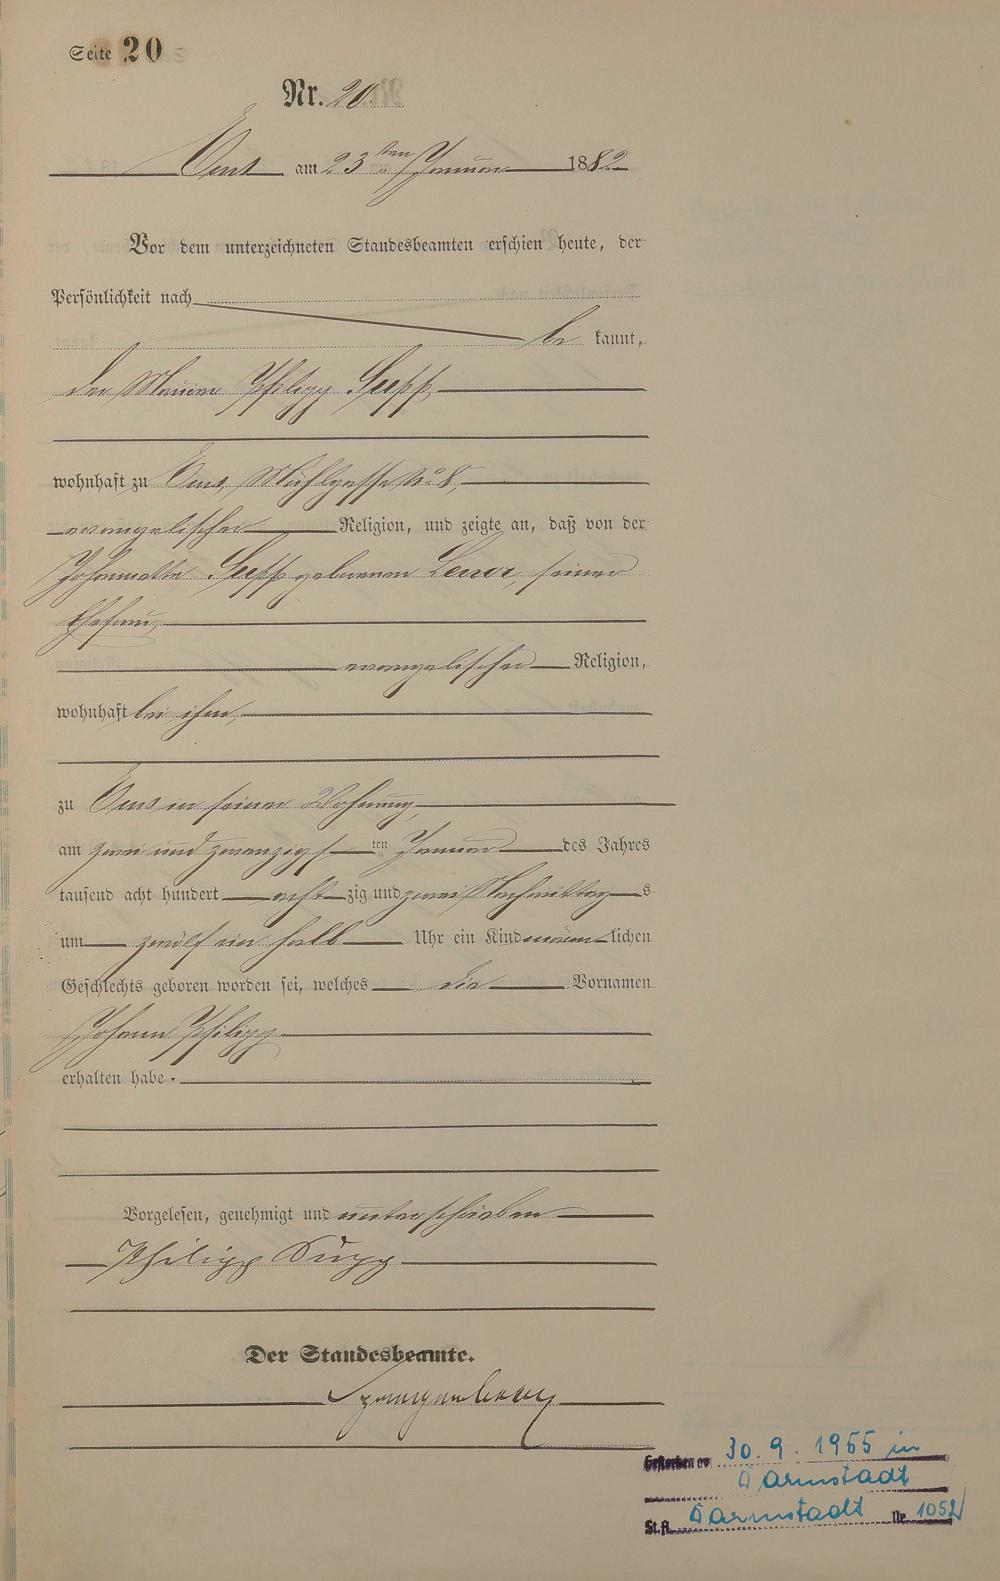 Seite 20
Nr. 20.
Ems am 23ten Januar 1882
Vor dem unterzeichneten Standesbeamten erschien heute, der
Persönlichkeit nach
be kannt,
der Maurer Philipp Supp,
wohnhaft zu Ems, Mühlgasse No 8,
evangelischer Religion, und zeigte an, daß von der
Johannette Supp geborenen seiner
Ehefrau,
evangelischer Religion,
wohnhaft bei ihm,
zu Ems in seiner Wohnung,
am zwei und zwanzigsten Januar des Jahres
tausend acht hundert acht zig und zwei Nachmittags
um zwölf ein halb Uhr ein Kind männlichen
Geschlechts geboren worden sei, welches die Vornamen
Johann Philipp
erhalten habe.
Vorgelesen, genehmigt und unterschrieben
Philipp Supp
Der Standesbeamte.
Spangenberg
Gestorben am 30.9.1955 in
Darmstadt
St.A. Darmstadt Nr. 1052